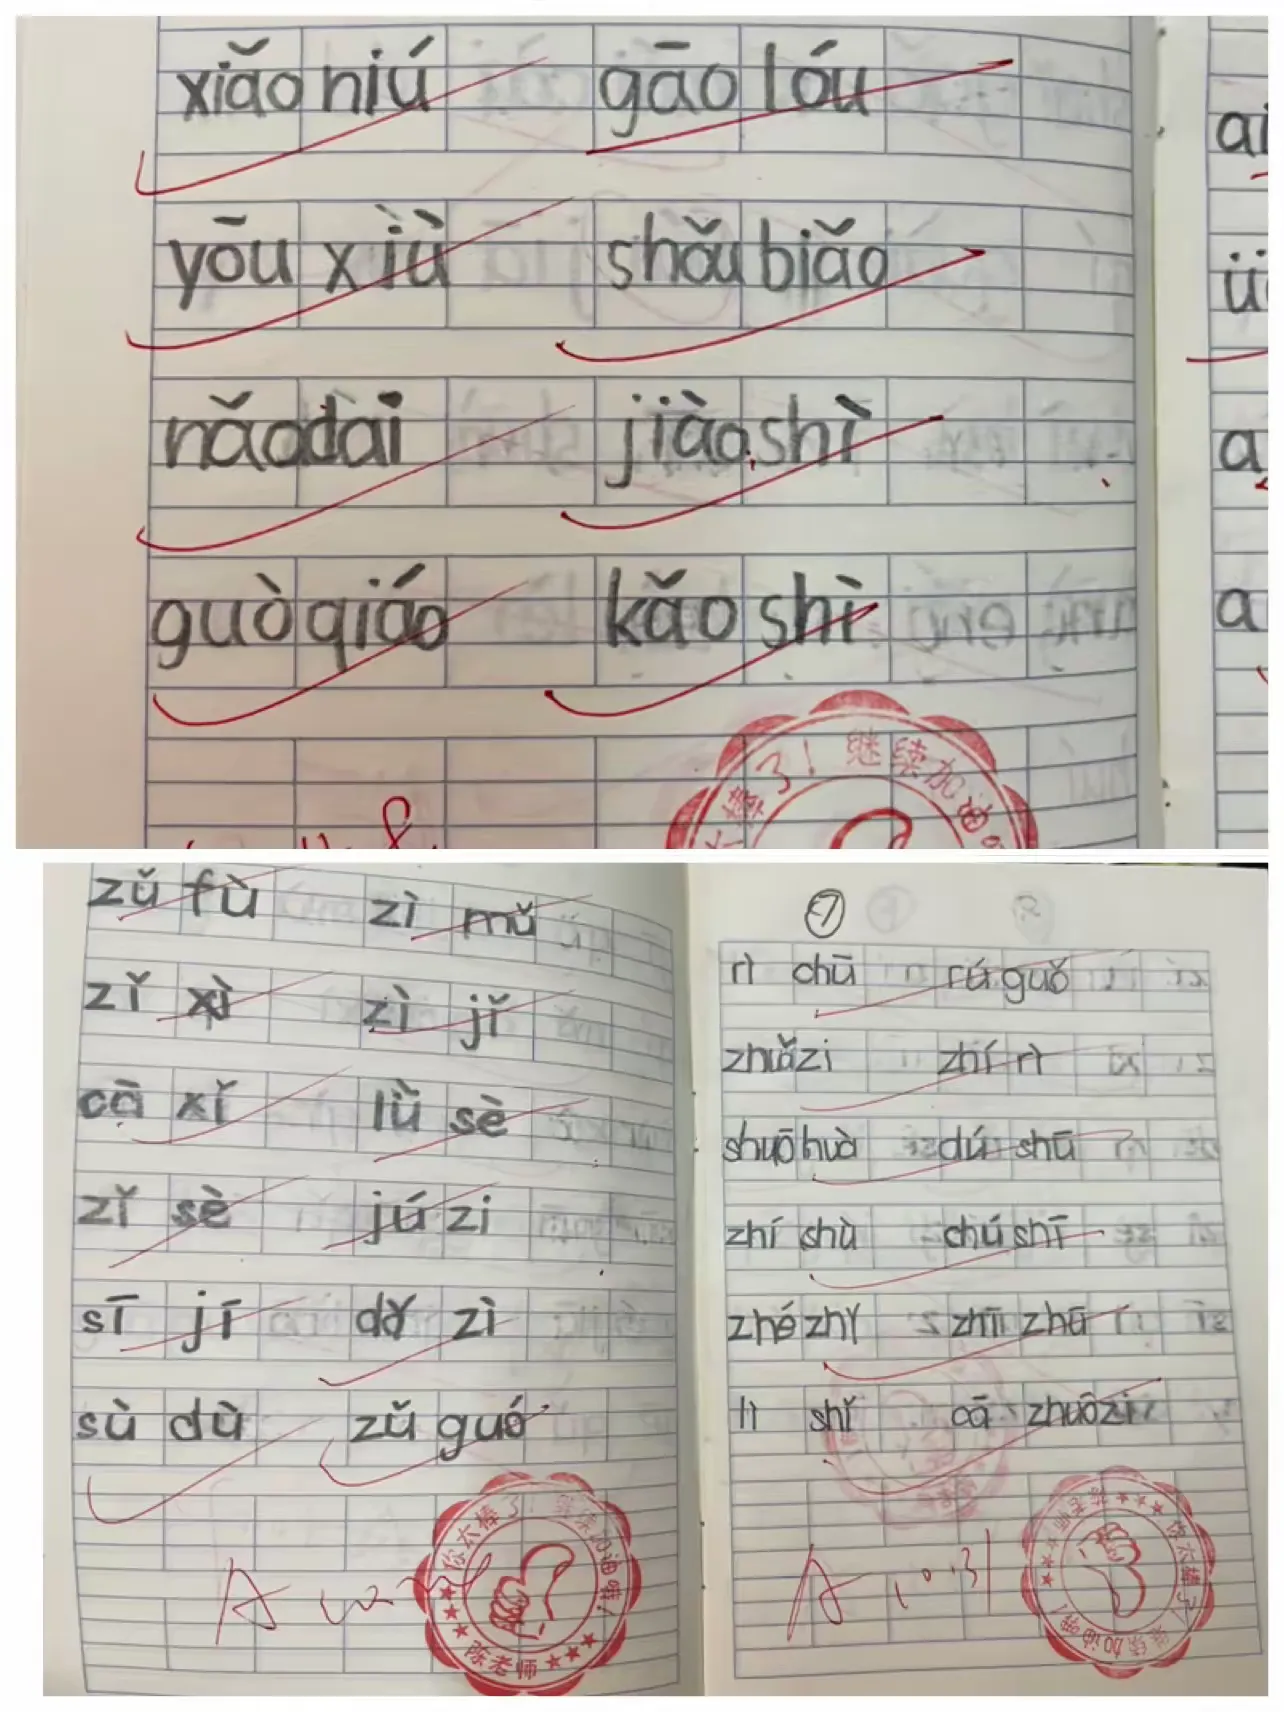 xiǎo niú gāo lóu
ai
yōu xiù shǒu biǎo
ü
nǎo dai jiào shì
a
guò qiáo kǎo shì
a
棒了！继续加油
zǔ fù zì mǔ
zǐ xì zì jǐ
cā xǐ lǜ sè
zǐ sè jú zi
sī jī zì
sù dù zǔ guó
A
你太棒了！继续加油哦！
陈老师
⑦
rì chū rú guǒ
zhuǎ zi zhí rì
shuō huà dú shū
zhí shù chú shī
zhé zhǐ zhī zhū
lì shǐ cā zhuō zi
A 10.31
你太棒了！继续加油哦！
陈老师